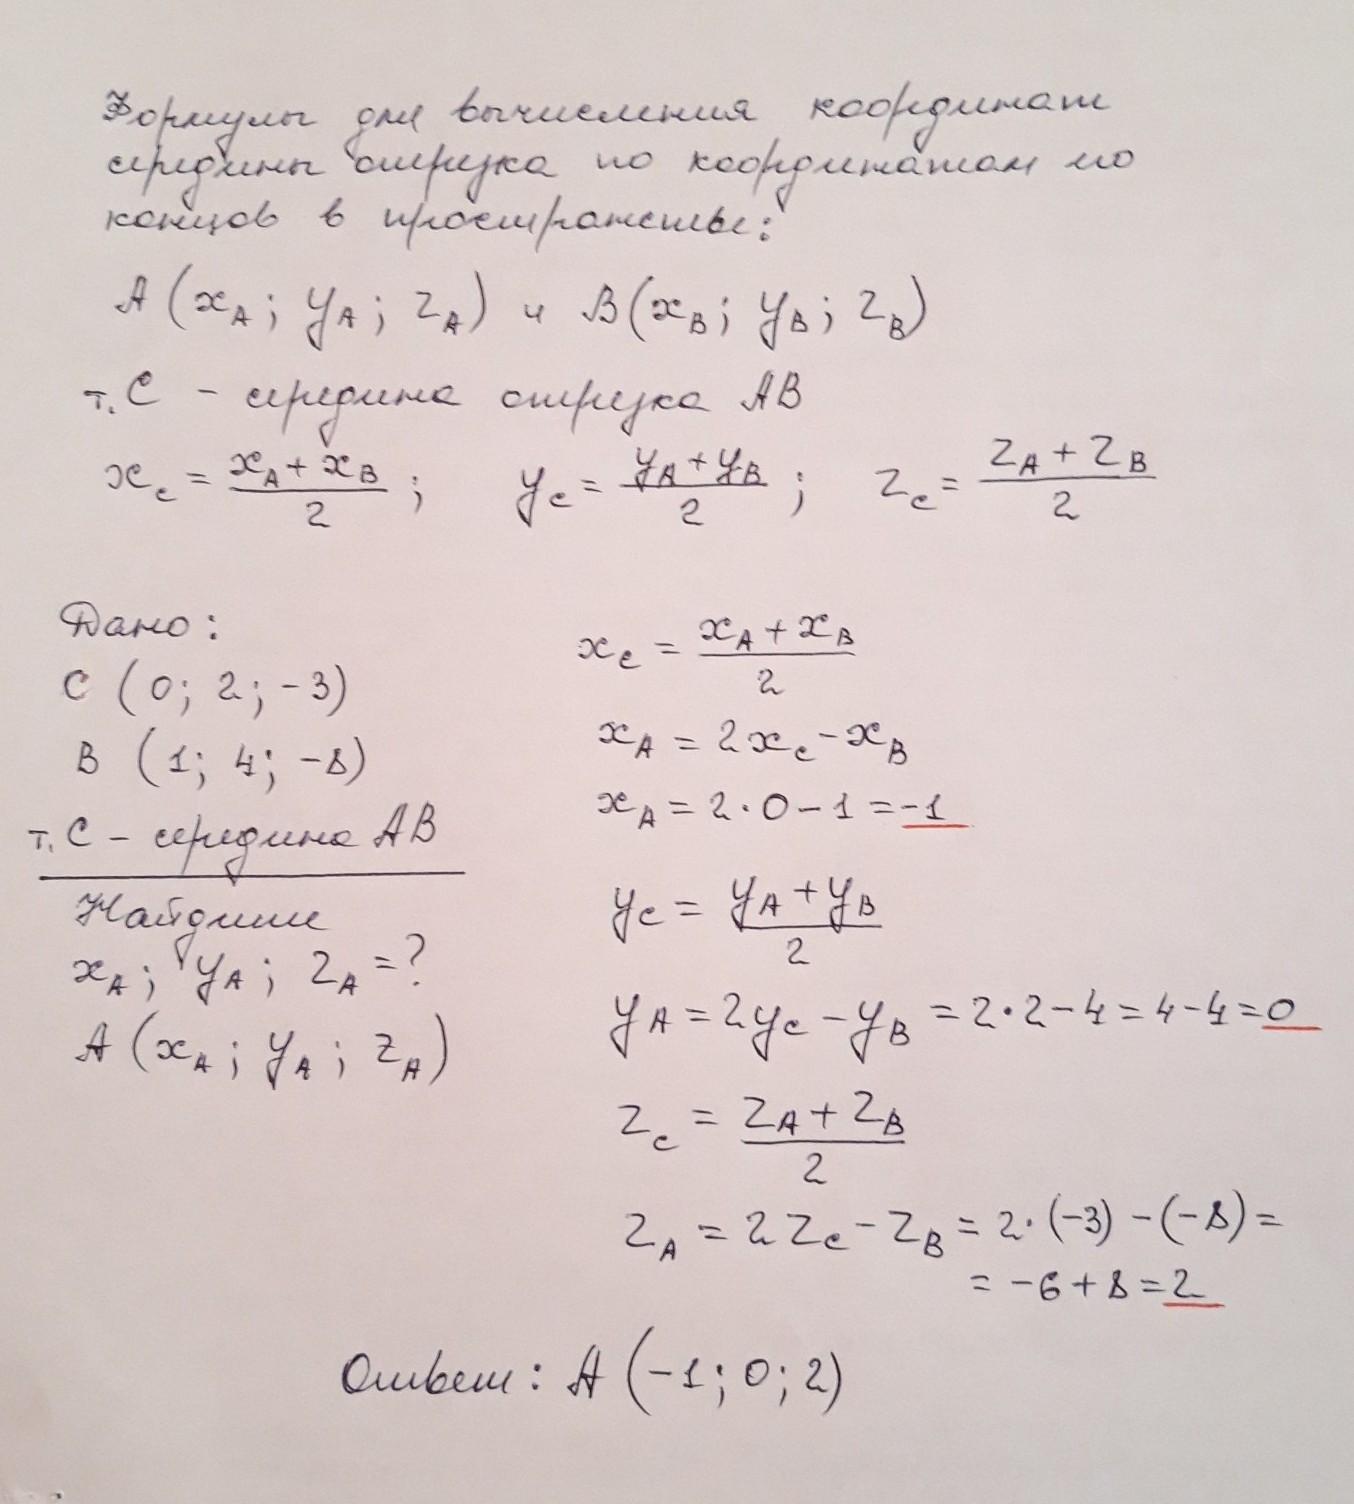 Формулы для вычисления координат
середины отрезка по координатам его
концов в пространстве:
A (x_A; y_A; z_A) и B (x_B; y_B; z_B)
т. C - середина отрезка AB
x_c = (x_A + x_B)/2; y_c = (y_A + y_B)/2; z_c = (z_A + z_B)/2
Дано:
C (0; 2; -3)
B (1; 4; -8)
т. C - середина AB
Найдите
x_A; y_A; z_A = ?
A (x_A; y_A; z_A)
x_c = (x_A + x_B)/2
x_A = 2x_c - x_B
x_A = 2·0 - 1 = -1
y_c = (y_A + y_B)/2
y_A = 2y_c - y_B = 2·2 - 4 = 4 - 4 = 0
z_c = (z_A + z_B)/2
z_A = 2z_c - z_B = 2·(-3) - (-8) =
= -6 + 8 = 2
Ответ: A (-1; 0; 2)